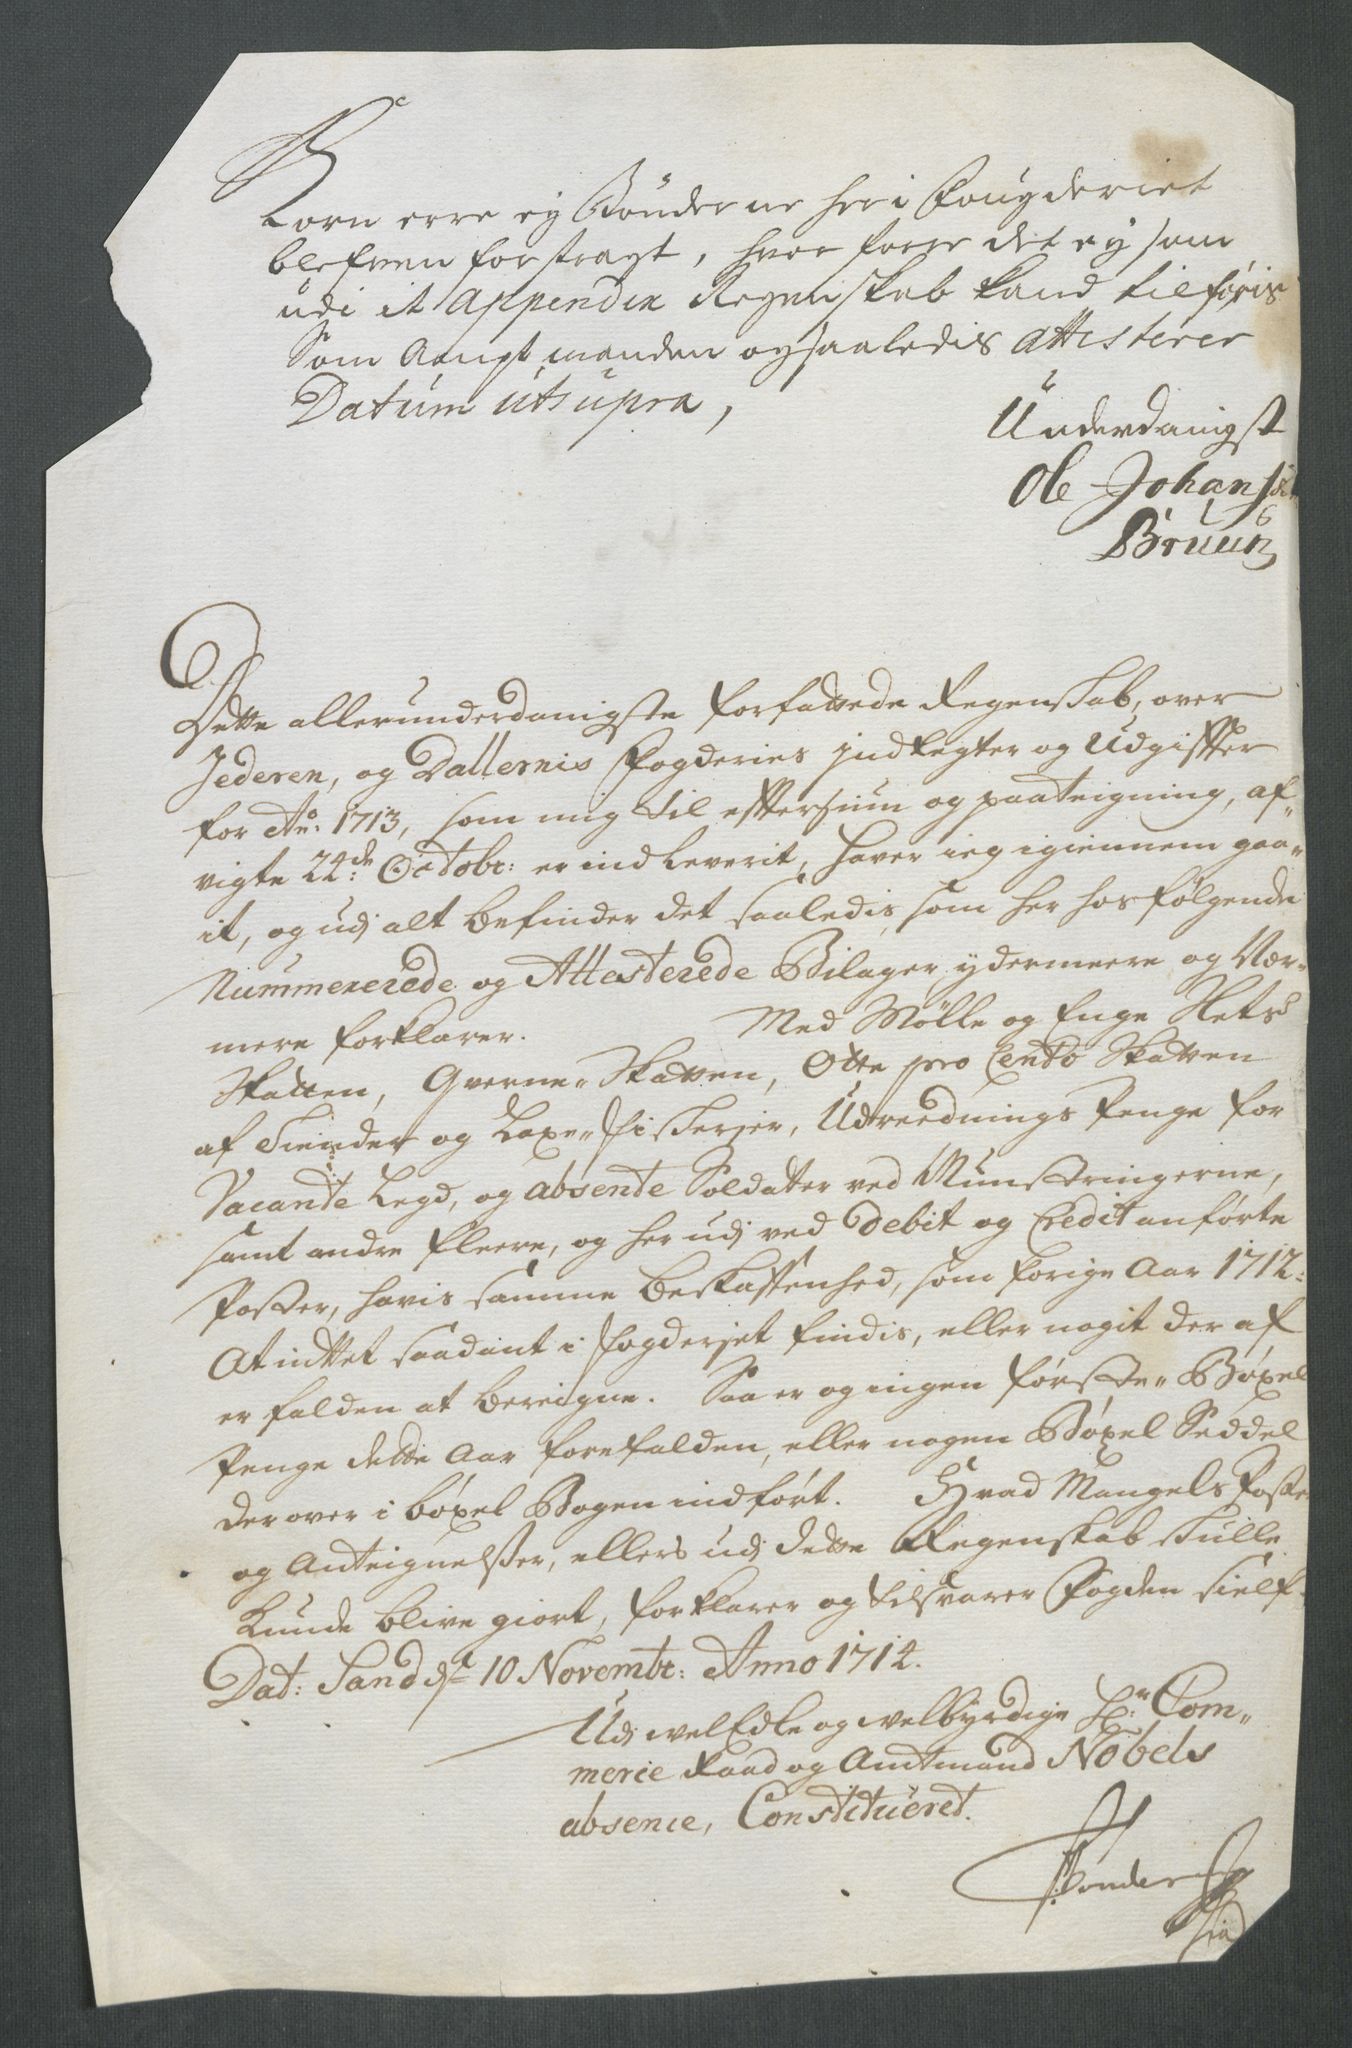 Korn erre ej Bønderne her i Fougderiet
blefven forstragt, hvor forre det ej som
udi it Appendix Regenskab kand tilføris
Som Amptmanden og saaledis Attesterer
Datum utsupra,
Underdanigst
Ole Johansen
Bruun
Dette allerunderdanigste forfattede Regenskab, over
Jederen, og Dallernis Fogderies Indtegter og Udgiffter
for Ao: 1713, som mig til efftersiun og paateigning, af„
vigte 22de Octobr: er indleverit, haver ieg igiennem gaa„
it, og udj alt befinder det saaledis, som her hosfølgende
Nummererede og Attesterede Bilager, ydermeere og Nær„
mere forklarer. Med Mølle og Enge Slets
Skatten, Qverne„ Skatten, Otte pro Cento Skatten
af Tiender og Laxe„ fiskerjer, Udreednings Penge for
Vacante Legd, og absente Soldatter ved Munstringerne,
samt andre fleere, og her udj ved Debit og Credit anførte
Poster, havis samme beskaffenhed, som forige Aar 1712:
At inttet saadant i fogderjet findis, eller nogit der af
er falden at bereigne. Saa er og ingen første„ Bøxel
Penge dette Aar forefalden, eller nogen Bøxel Seddel
der over i bøxel Bogen indført. Hvad Mangels Poster
og Anteignelsser, ellers udj dette Regenskab skulle
kunde blive giort, forklarer og tilsvarer Fogden sielf.
Dat: Sand ds 10 Novembr: Anno 1714.
Udj welEdle og welbyrdige Hr: Com„
merie Raad og Amtmand Nobels
absence, Constitueret.